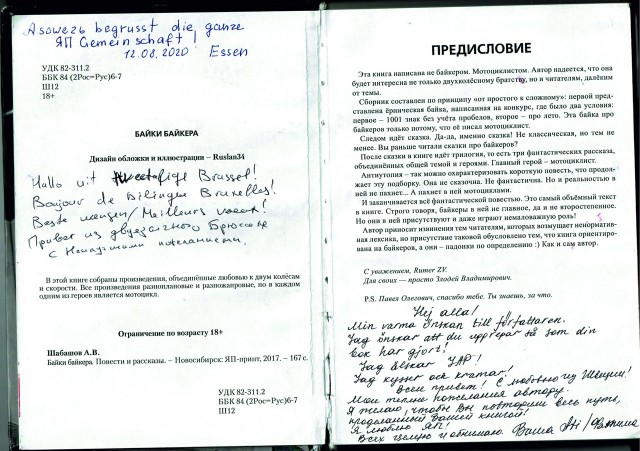 Asower begrusst die ganze
ЯП Gemeinschaft!
12.08.2020 Essen
УДК 82-311.2
ББК 84 (2Рос=Рус)6-7
Ш12
18+
БАЙКИ БАЙКЕРА
Дизайн обложки и иллюстрации – Ruslan34
Hallo uit Brussel!
Bonjour de Bilingue Bruxelles!
Beste wensen/Meilleurs voeux!
Привет из двуязычного Брюсселя
с Наилучшими пожеланиями.
В этой книге собраны произведения, объединённые любовью к двум колёсам
и скорости. Все произведения разноплановые и разножанровые, но в каждом
одним из героев является мотоцикл.
Ограничение по возрасту 18+
Шабашов А.В.
Байки байкера. Повести и рассказы. – Новосибирск: ЯП-принт, 2017. – 167 с.
УДК 82-311.2
ББК 84 (2Рос=Рус)6-7
Ш12
ПРЕДИСЛОВИЕ
Эта книга написана не байкером. Мотоциклистом. Автор надеется, что она
будет интересна не только двухколёсному братству, но и читателям, далёким
от темы.
Сборник составлен по принципу «от простого к сложному»: первой пред-
ставлена ёрническая байка, написанная на конкурс, где было два условия:
первое – 1001 знак без учёта пробелов, второе – про лето. Эта байка про
байкеров только потому, что её писал мотоциклист.
Следом идёт сказка. Да-да, именно сказка! Не классическая, но тем не
менее. Вы раньше читали сказки про байкеров?
После сказки в книге идёт трилогия, то есть три фантастических рассказа,
объединённых общей темой и героями. Главный герой – мотоциклист.
Антиутопия – так можно охарактеризовать короткую повесть, что продол-
жает эту подборку. Она не сказочна. Не фантастична. Но и реальностью в
ней не пахнет... А пахнет в ней мотоциклами.
И заканчивается всё фантастической повестью. Это самый объёмный текст
в книге. Строго говоря, байкеры в ней не главное, да и не второстепенное.
Но они в ней присутствуют и даже играют немаловажную роль!
Автор приносит извинения тем читателям, которых возмущает ненорматив-
ная лексика, но присутствие таковой обусловлено тем, что книга ориентиро-
вана на байкеров, а они – падонки по определению :) Как и сам автор.
С уважением, Rumer ZV.
Для своих — просто Злодей Владимирович.
P.S. Павел Олегович, спасибо тебе. Ты знаешь, за что.
Hej alla!
Min varma önskan till författaren.
Jag önskar att du upprepar så som din
bok har gjort!
Jag älskar YAP!
Jag kysser ock kramar!
Всем привет! С любовью из Швеции!
Мои теплые пожелания автору.
Я желаю, чтобы Вы повторили весь путь,
проделанный Вашей книгой!
Я люблю ЯП!
Всех целую и обнимаю. Ваша